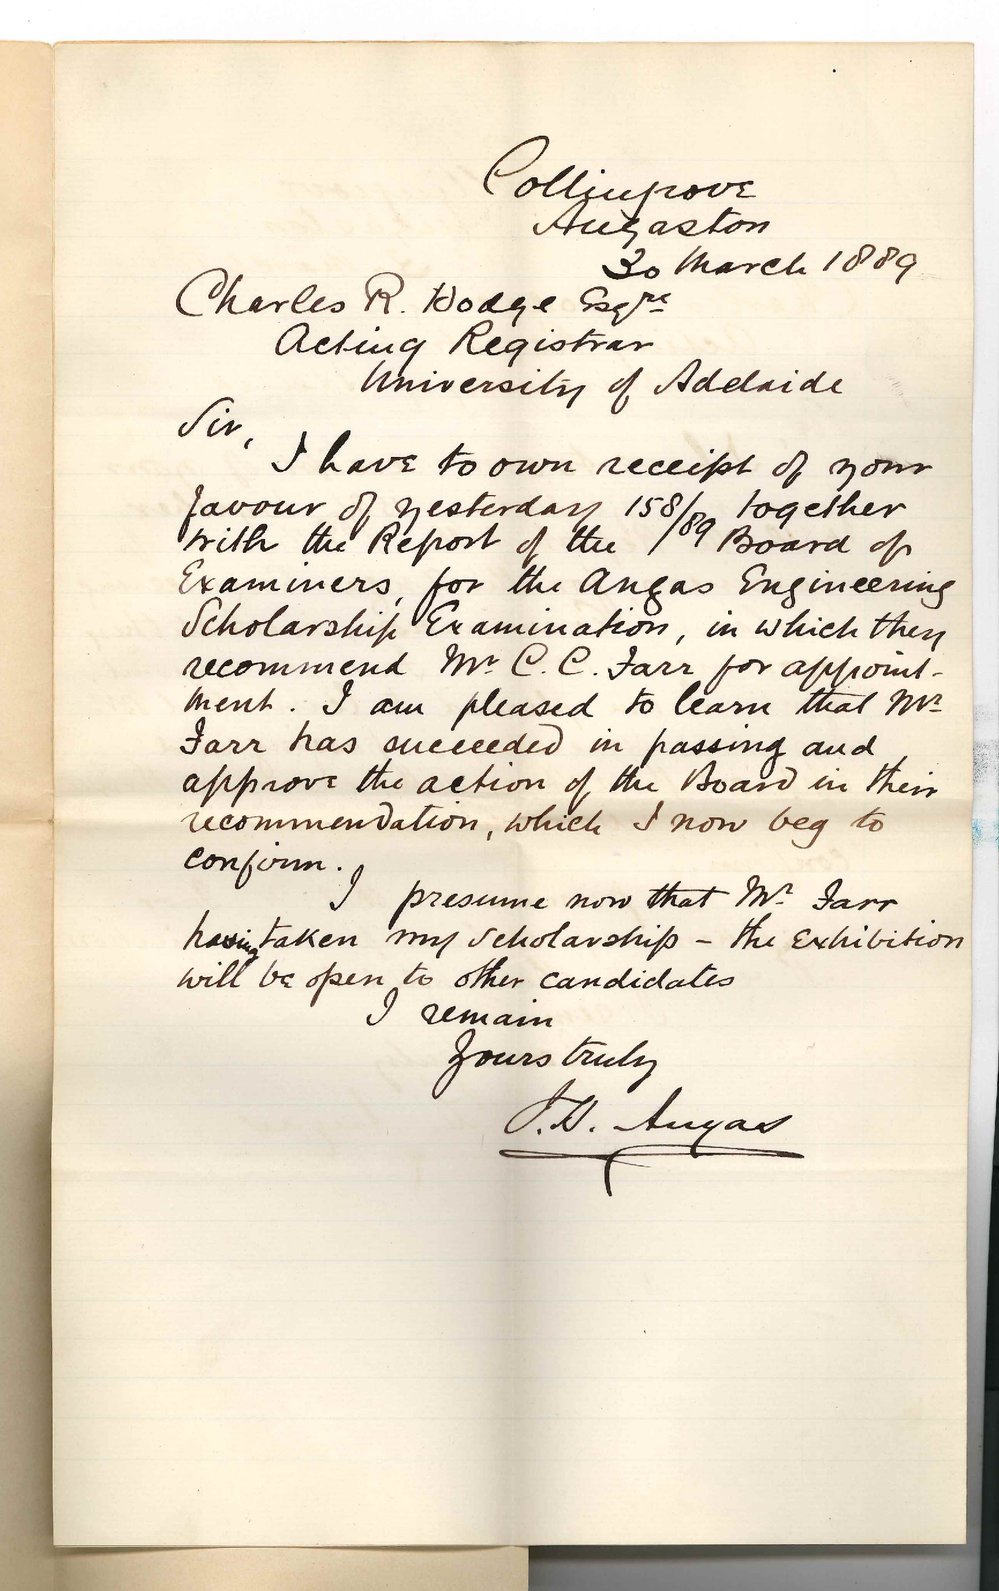 Collingrove
Angaston
30 March 1889
Charles R. Hodge Esqre
Acting Registrar
University of Adelaide
Sir,
I have to own receipt of your
favour of yesterday 158/89 together
with the Report of the Board of
Examiners, for the Angas Engineering
Scholarship Examination, in which they
recommend Mr C. C. Farr for appoint-
ment. I am pleased to learn that Mr
Farr has succeeded in passing and
approve the action of the Board in their
recommendation, which I now beg to
confirm.
I presume now that Mr Farr
having taken my Scholarship - the Exhibition
will be open to other candidates
I remain
Yours truly
J. H. Angas